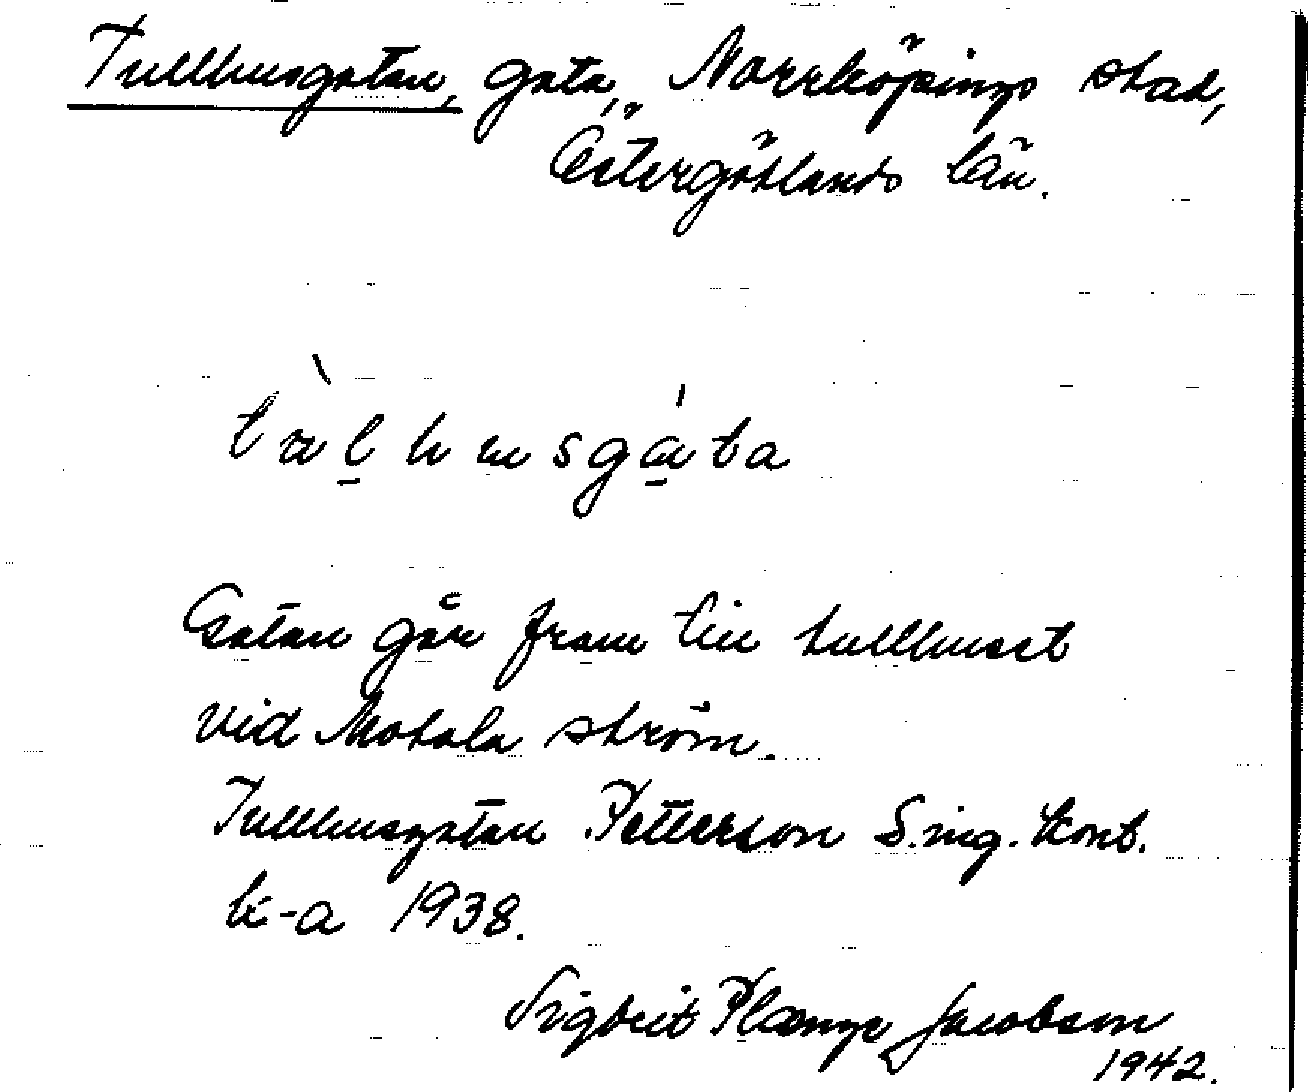 Tullhusgatan, gata, Norrköpings stad,
Östergötlands län.
Gatan går fram till tullhuset
vid Motala ström.
Tullhusgatan Petterson S. ing. kont.
k-a 1938.
Sigbrit Plænge Jacobson
1942.